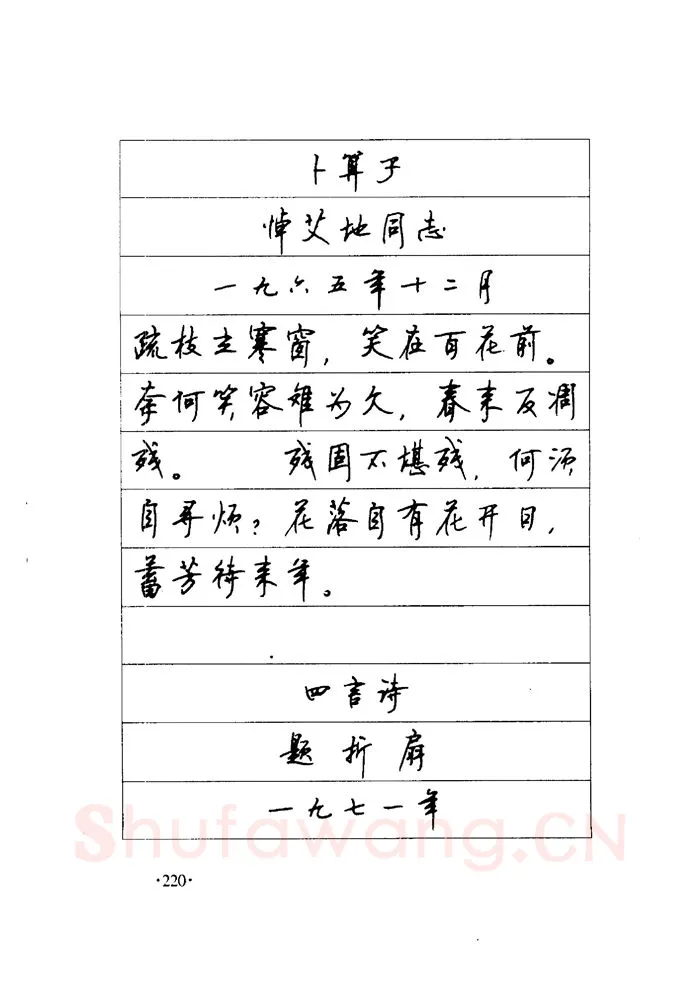 卜算子
悼艾地同志
一九六五年十二月
疏枝立寒窗，笑在百花前。
奈何笑容难为久，春来反凋
残。 残固不堪残，何须
自寻烦？花落自有花开日，
蓄芳待来年。
四言诗
题折扇
一九七一年
Shufawang.CN
·220·